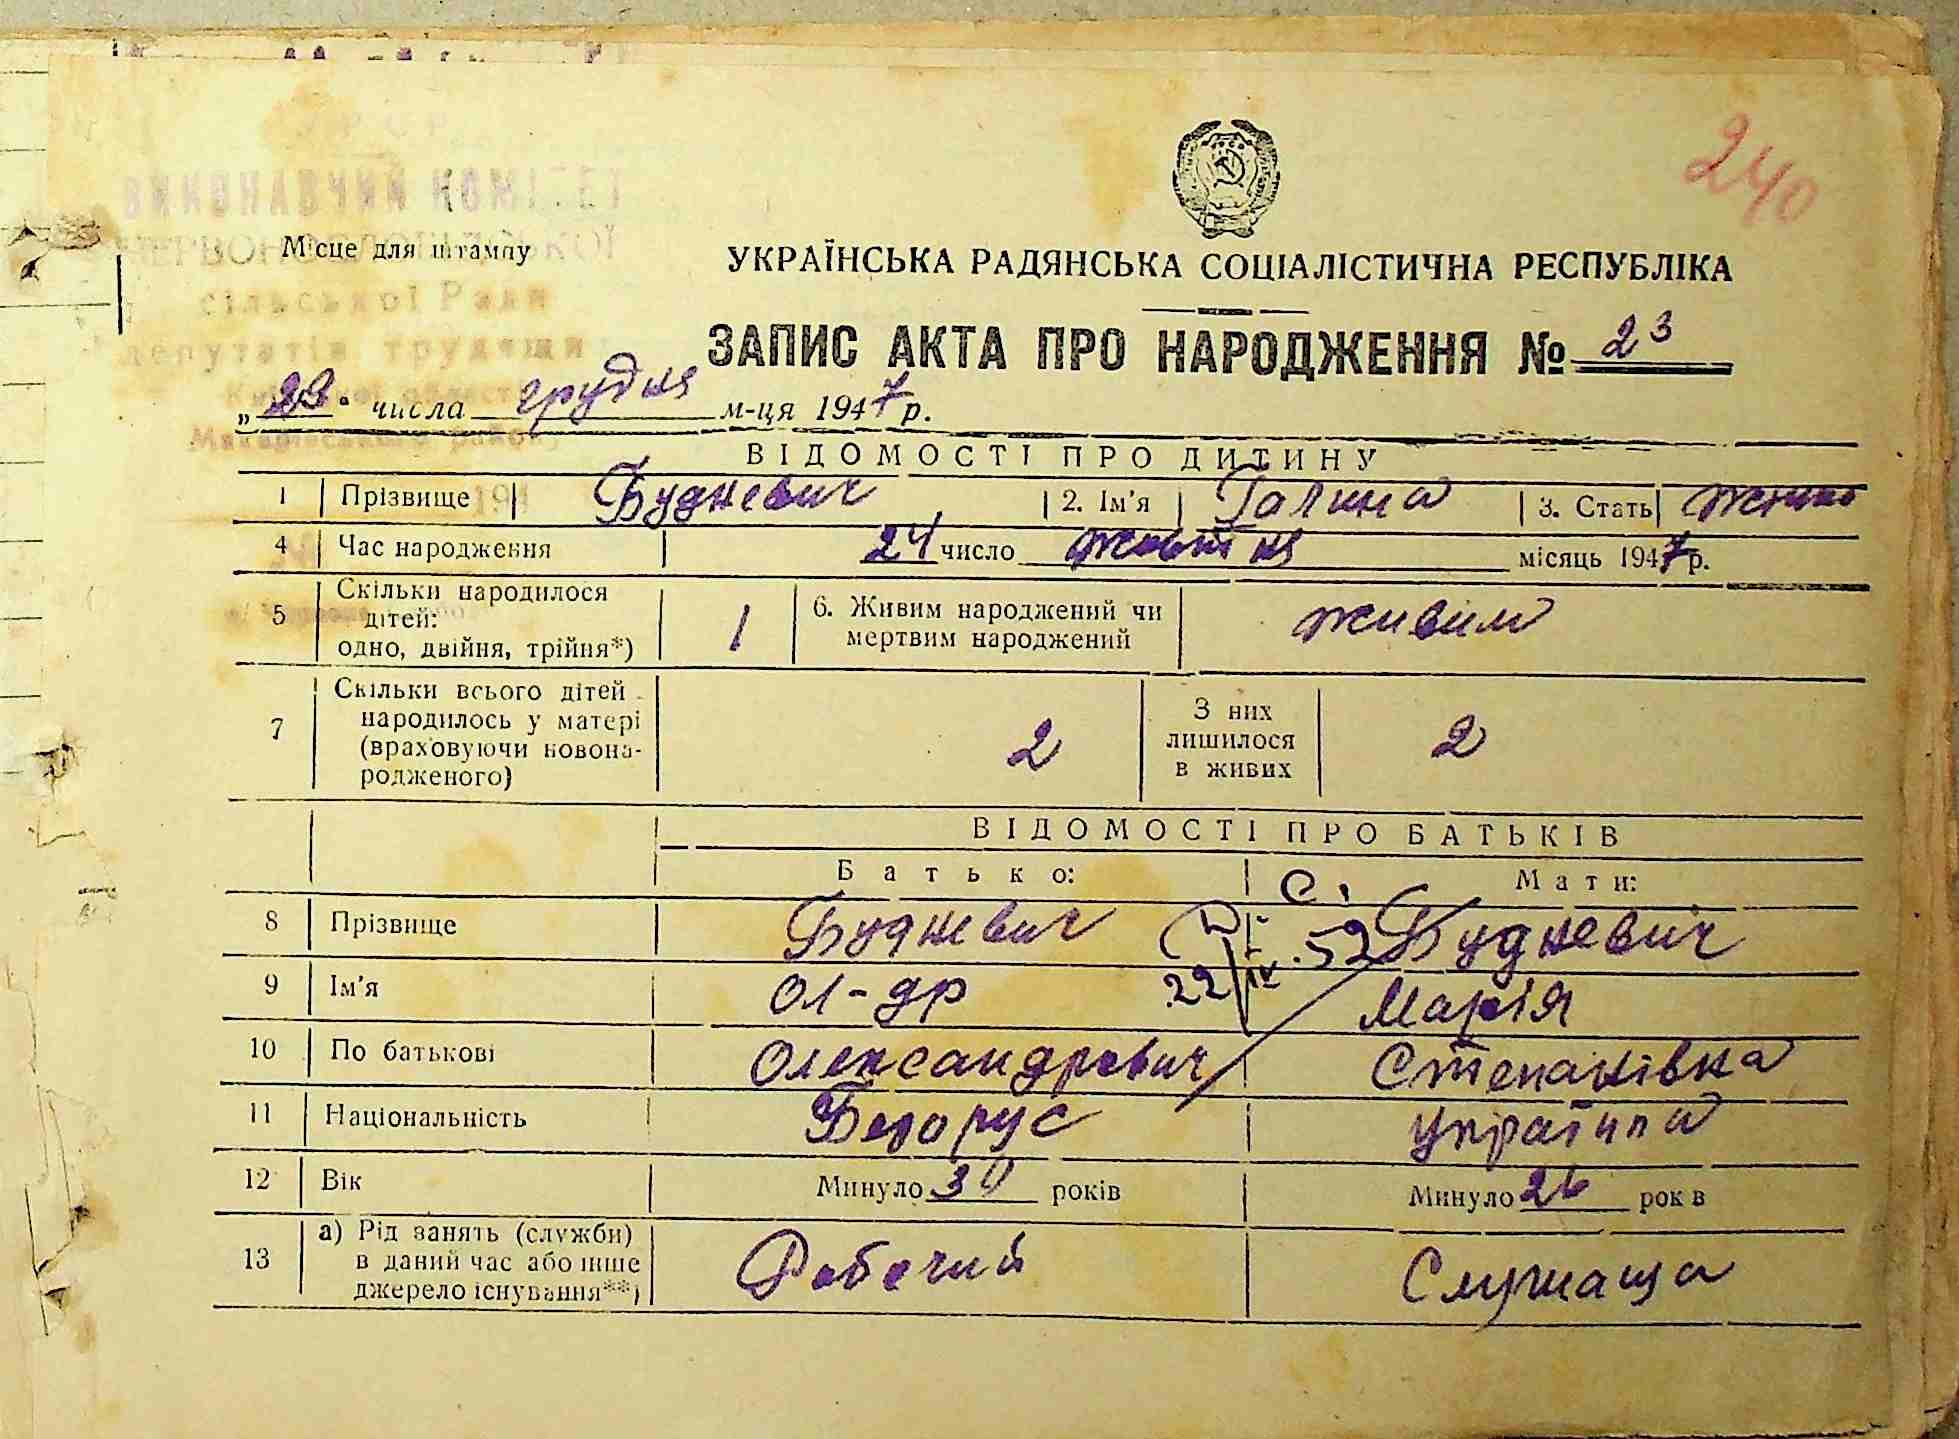 240
УРСР
ВИКОНАВЧИЙ КОМІТЕТ
Місце для штампу
сільської Ради
депутатів трудящих
Макарівського району
УКРАЇНСЬКА РАДЯНСЬКА СОЦІАЛІСТИЧНА РЕСПУБЛІКА
ЗАПИС АКТА ПРО НАРОДЖЕННЯ № 23
„29“ числа грудня м-ця 1947 р.
ВІДОМОСТІ ПРО ДИТИНУ
1 Прізвище Будневич 2. Ім'я Галина 3. Стать
4 Час народження 24 число жовтня місяць 1947 р.
5 Скільки народилося дітей: одно, двійня, трійня*) 1 6. Живим народжений чи мертвим народжений живим
7 Скільки всього дітей народилось у матері (враховуючи новонародженого) 2 З них лишилося в живих 2
ВІДОМОСТІ ПРО БАТЬКІВ
Батько: Мати:
8 Прізвище Будневич Будневич
9 Ім'я Ол-др Марія
10 По батькові Олександревич Степанівна
11 Національність Білорус Українка
12 Вік Минуло 30 років Минуло 26 рок в
13 а) Рід занять (служби) в даний час або інше джерело існування**) Робочий Служаща